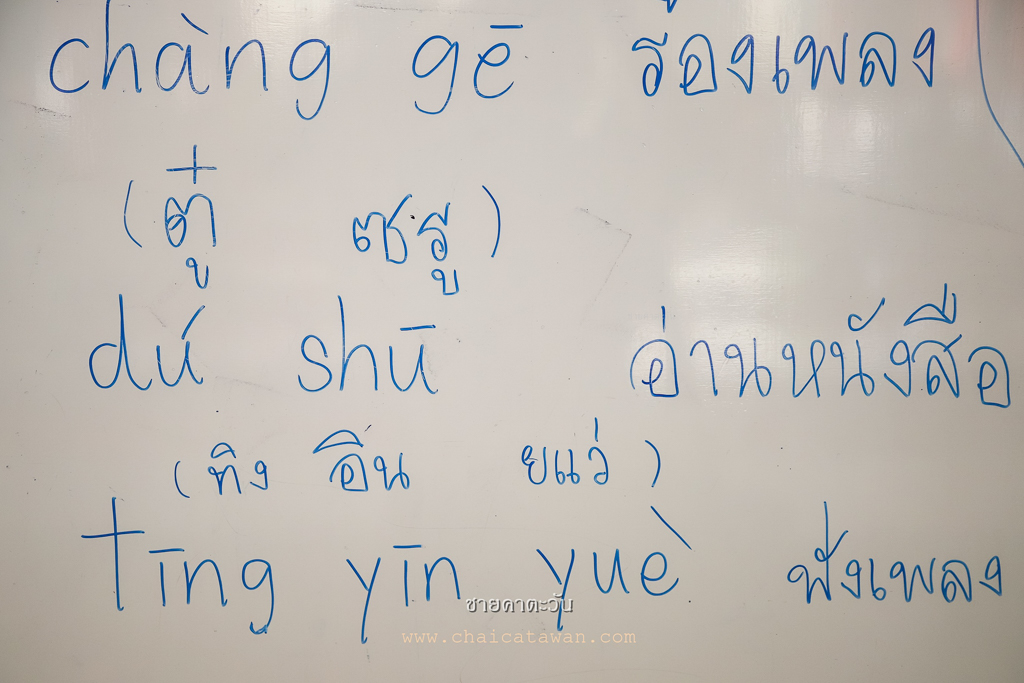 chàng gē ร้องเพลง
(ตู๋ ซรู)
dú shū อ่านหนังสือ
(ทิง อิน ยแว่)
tīng yīn yuè ฟังเพลง
ชายคาตะวัน
www.chaicatawan.com